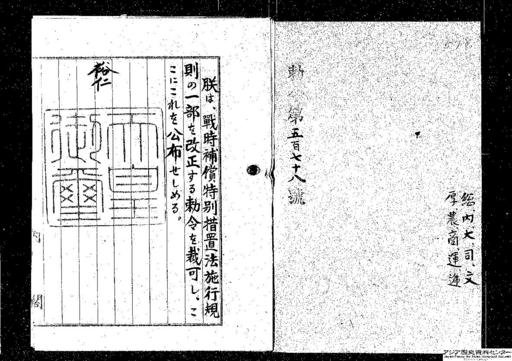 勅令第五百七十八號
総、内、大、司、文
厚、農、商、運、逓
朕は、戰時補償特別措置法施行規
則の一部を改正する勅令を裁可し、こ
こにこれを公布せしめる。
裕仁
天皇
御璽
内
閣
アジア歴史資料センター